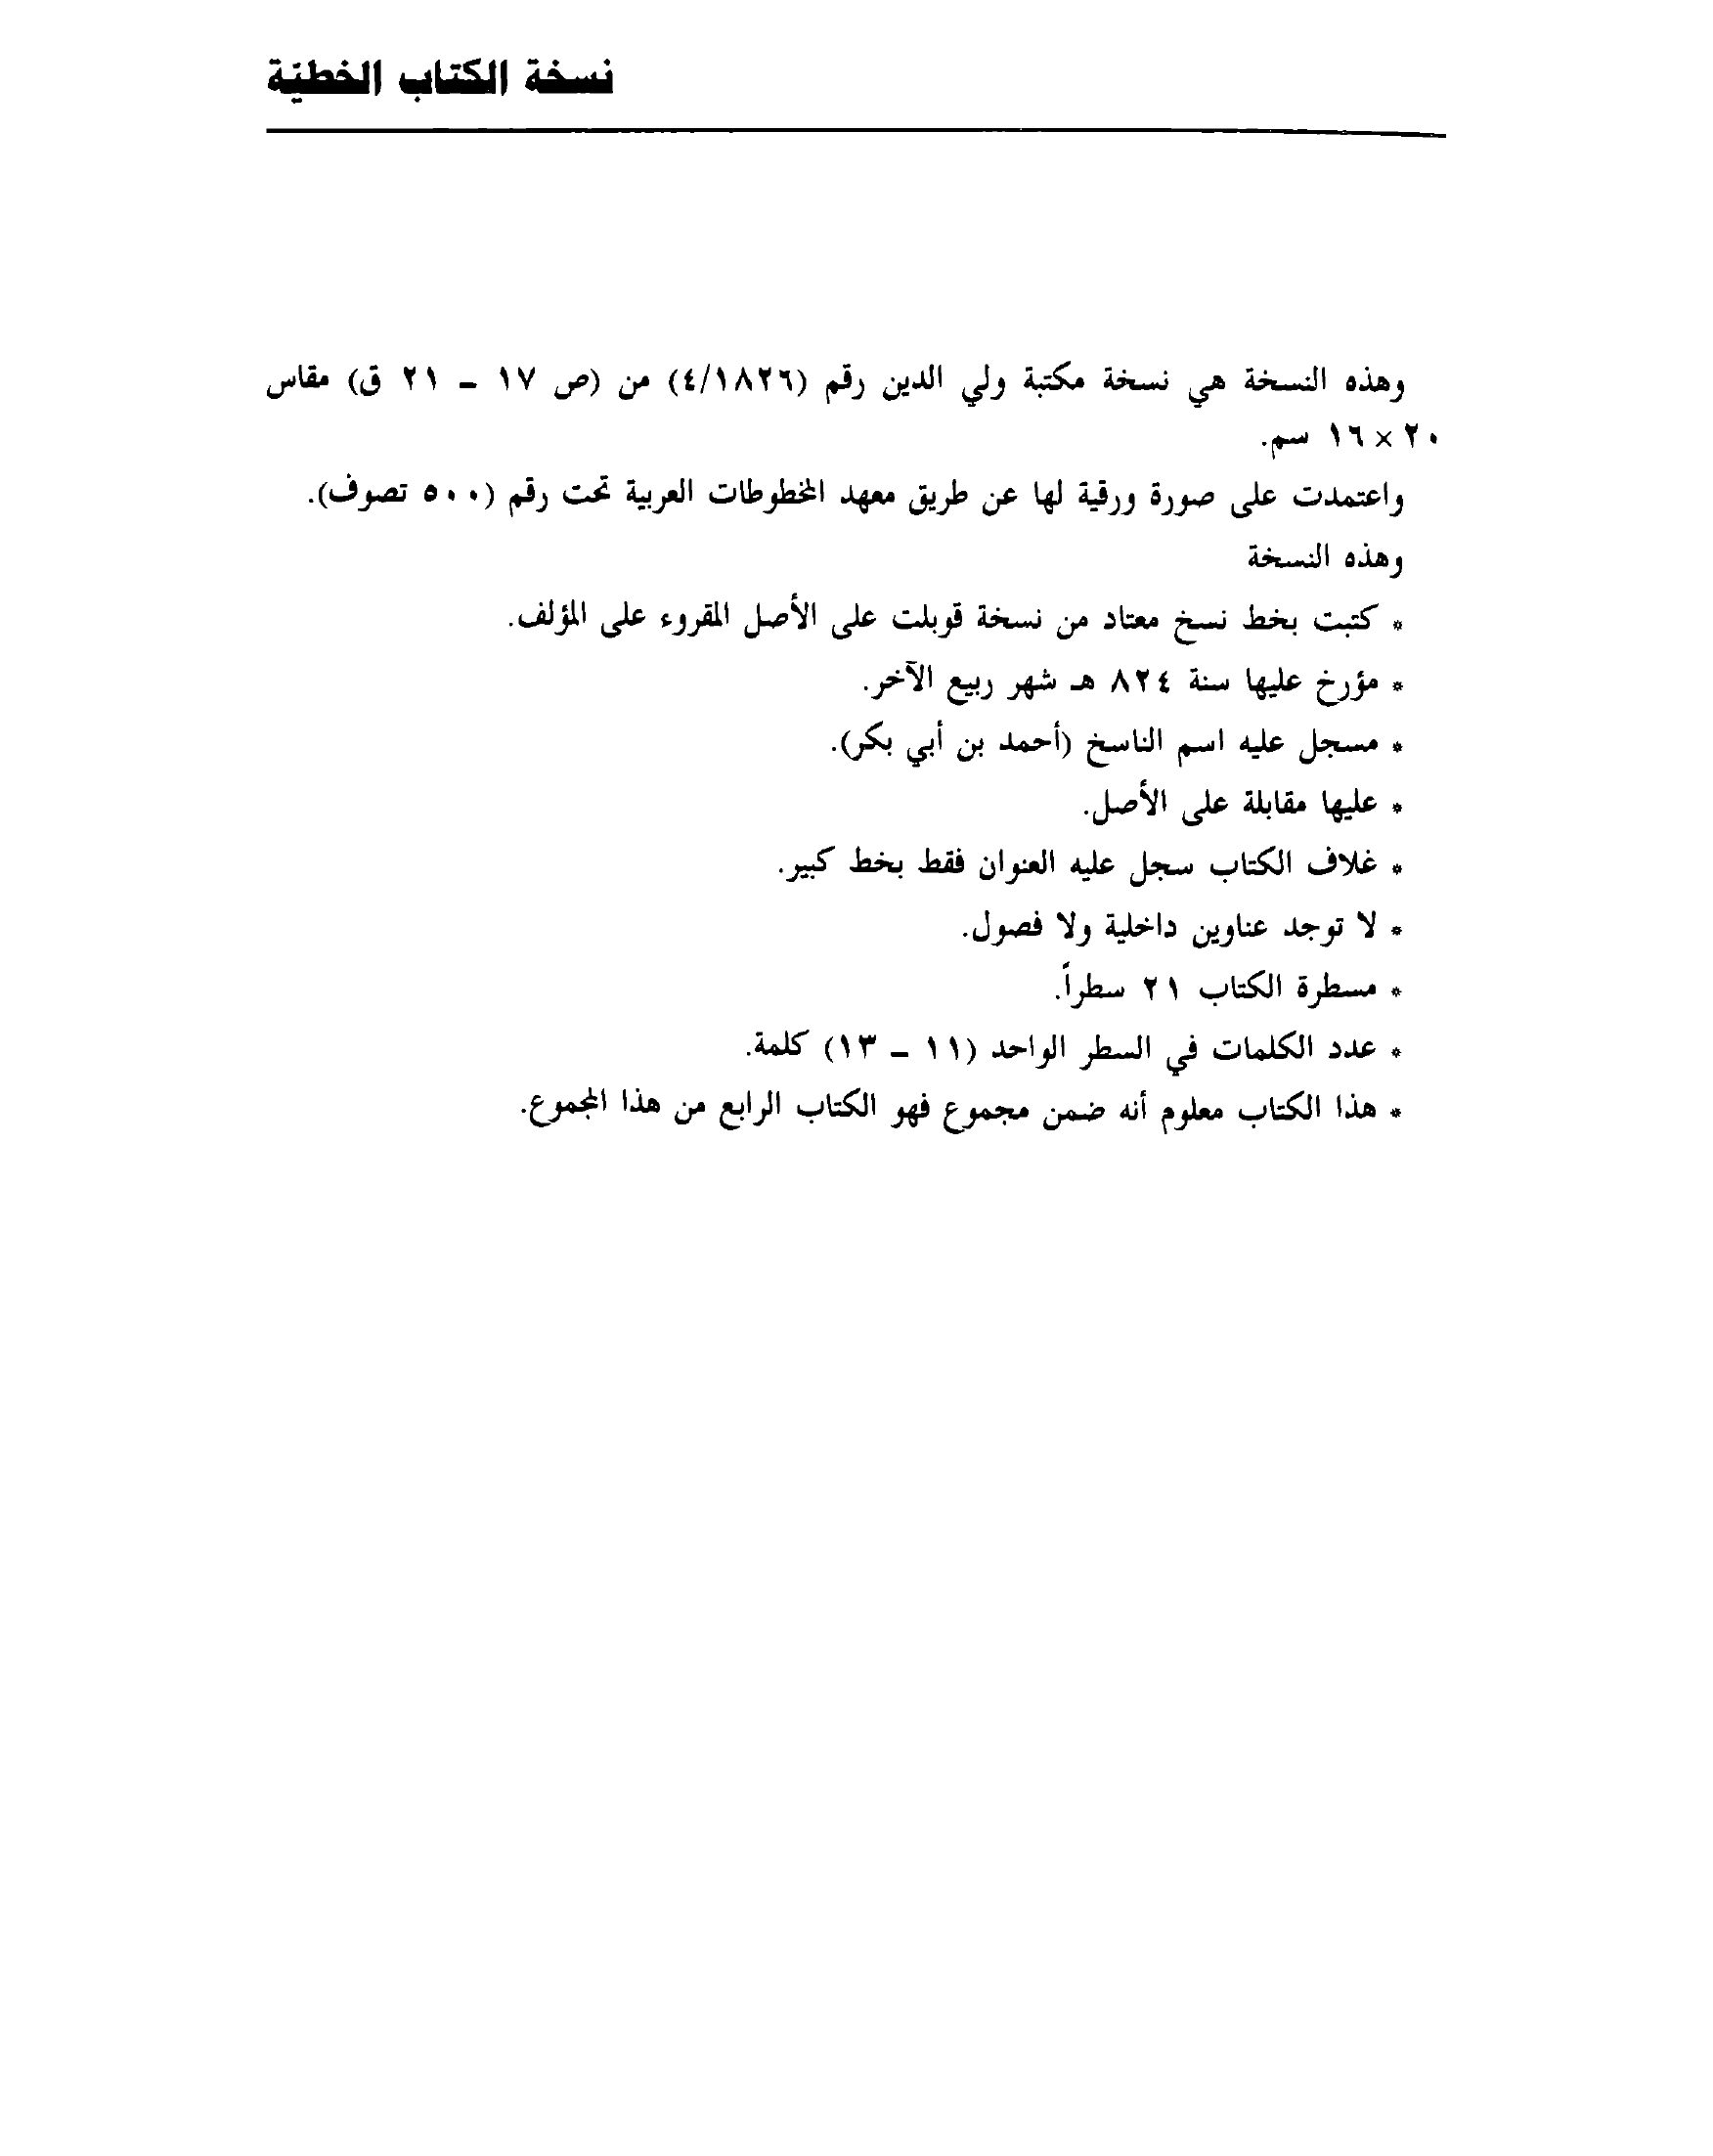 نسخة الكتاب الخطيّة
وهذه النسخة هي نسخة مكتبة ولي الدين رقم (٤/١٨٢٦) من (ص ١٧ ـ ٢١ ق) مقاس
٢٠ × ١٦ سم.
واعتمدت على صورة ورقية لها عن طريق معهد المخطوطات العربية تحت رقم (٥٠٠ تصوف).
وهذه النسخة
* كتبت بخط نسخ معتاد من نسخة قوبلت على الأصل المقروء على المؤلف.
* مؤرخ عليها سنة ٨٢٤ هـ شهر ربيع الآخر.
* مسجل عليه اسم الناسخ (أحمد بن أبي بكر).
* عليها مقابلة على الأصل.
* غلاف الكتاب سجل عليه العنوان فقط بخط كبير.
* لا توجد عناوين داخلية ولا فصول.
* مسطرة الكتاب ٢١ سطراً.
* عدد الكلمات في السطر الواحد (١١ ـ ١٣) كلمة.
* هذا الكتاب معلوم أنه ضمن مجموع فهو الكتاب الرابع من هذا المجموع.